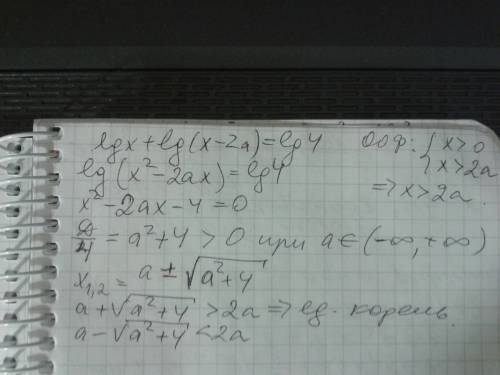 lg x + lg (x-2a) = lg 4 ООФ: { x>0
lg (x² - 2ax) = lg 4 { x>2a
x² - 2ax - 4 = 0 => x>2a
D/4 = a² + 4 > 0 при a ∈ (-∞, +∞)
x₁,₂ = a ± √(a²+4)
a + √(a²+4) > 2a => ед. корень.
a - √(a²+4) < 2a